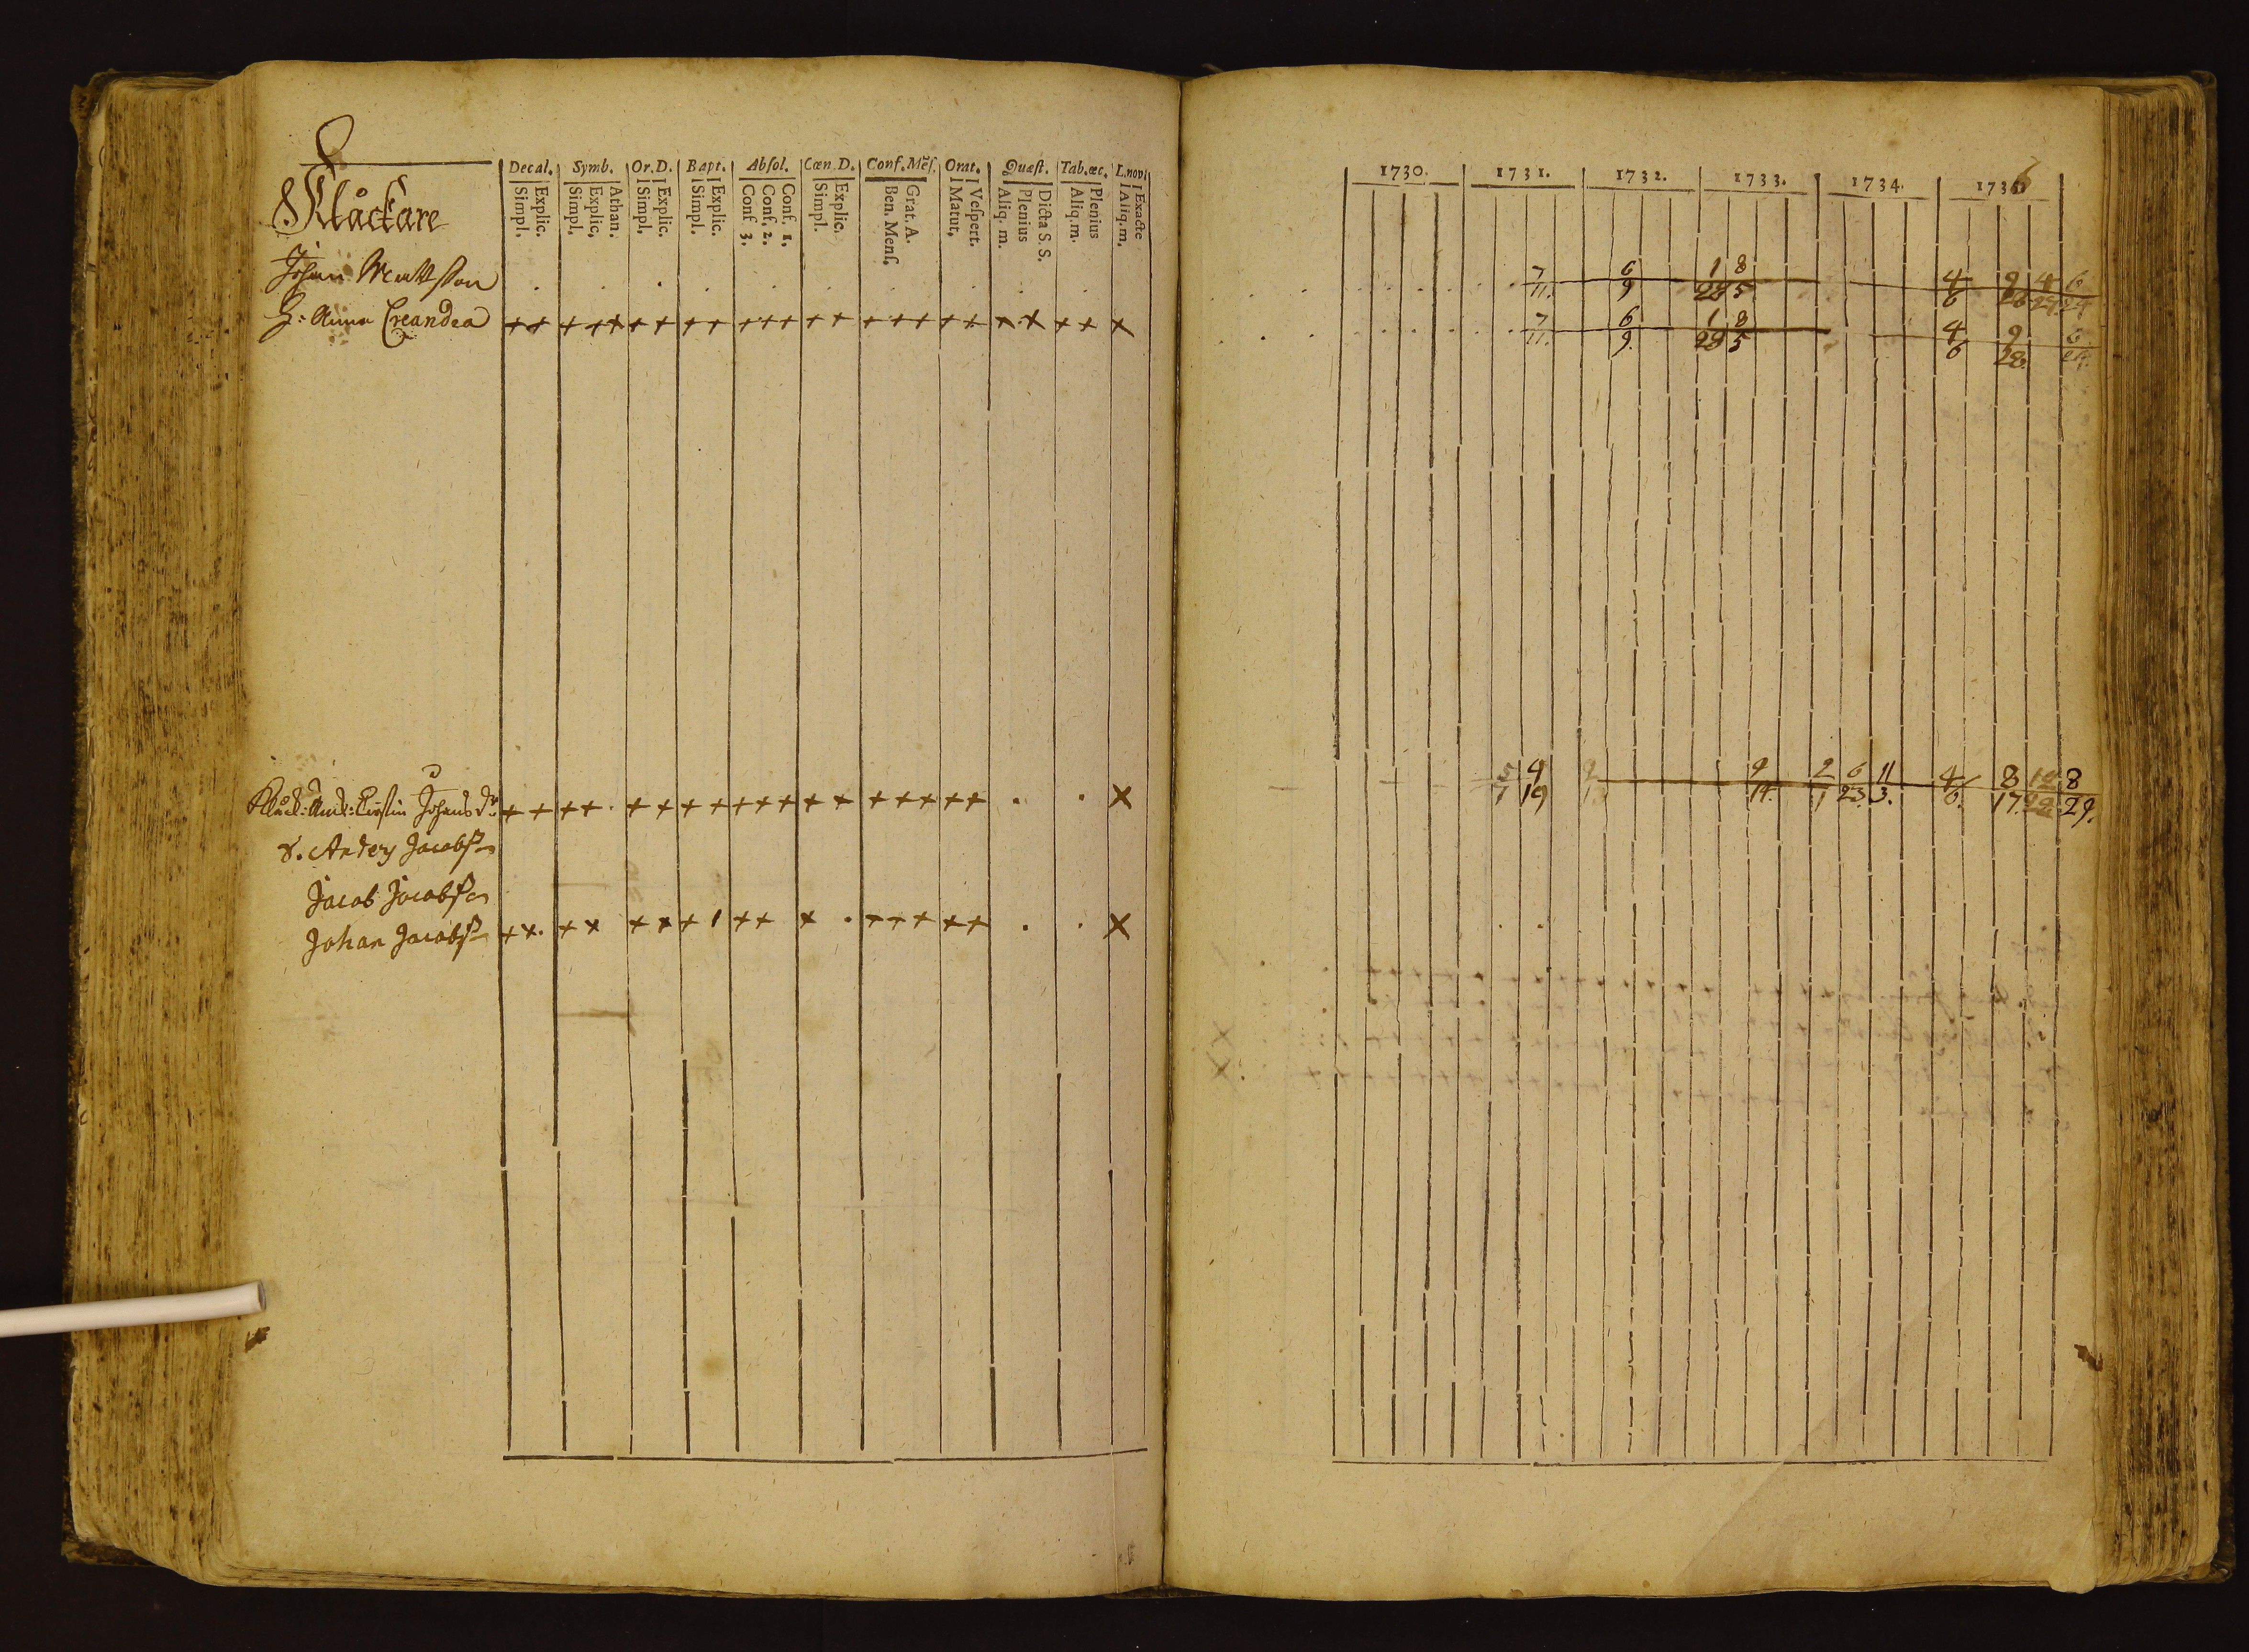 Decal. Symb. Or.D. Bapt. Absol. Cœn.D. Conf.Mēs. Orat. Quæst. Tab.œc. L.novi
Simpl. Explic. Simpl. Explic. Athan. Simpl. Explic. Simpl. Explic. Conf. 3. Conf. 2. Conf. 1. Simpl. Explic. Ben. Mens. Grat. A. Matut. Vespert. Aliq. m. Plenius Dicta S. S. Aliq. m. Plenius Aliq. m. Exacte
Klåckare
Johan Mattsson
H: Anna Creandra
Kiråck: Änck: Kirstin Johansdr
S. Anders Jacobss
Jacob Jacobss
Johan Jacobss
1730. 1731. 1732. 1733. 1734. 1736
7/11. 6/9 1/28 8/5 4/6 9/28 4/29 6/24
7/11. 6/9. 1/28 8/5 4/6 9/28.
5/1 4/19 9/14. 2/1 6/23. 11/3. 4/6. 8/17. 8/29.